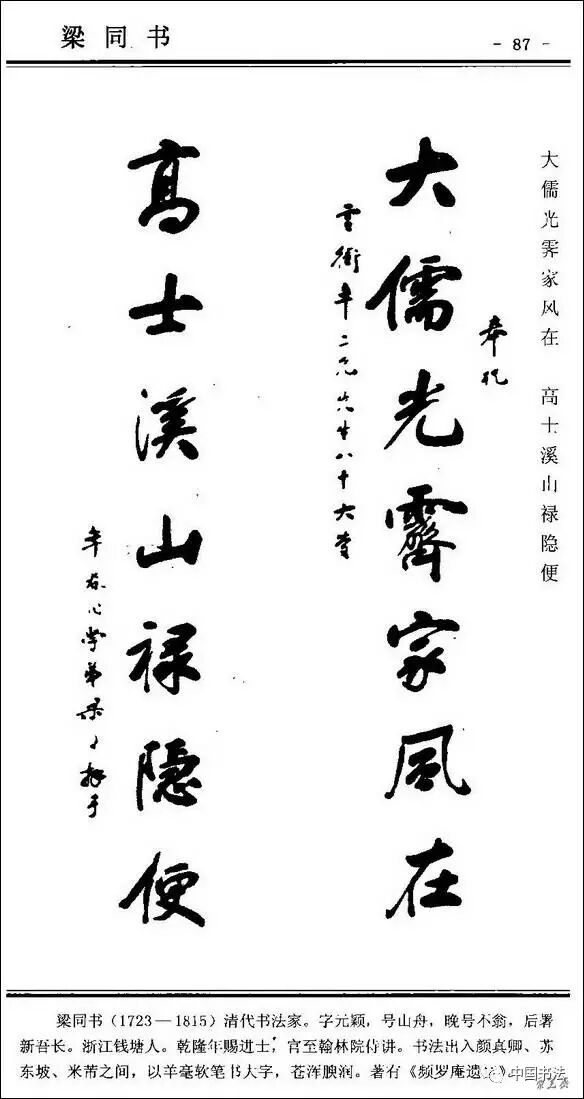 梁同书
- 87 -
大儒光霁家风在 高士溪山禄隐便
奉祝
大儒光霽家風在
高士溪山禄隐便
梁同书（1723—1815）清代书法家。字元颖，号山舟，晚号不翁，后署
新吾长。浙江钱塘人。乾隆年赐进士，官至翰林院侍讲。书法出入颜真卿、苏
东坡、米芾之间，以羊毫软笔书大字，苍浑腴润。著有《频罗庵遗
中国书法